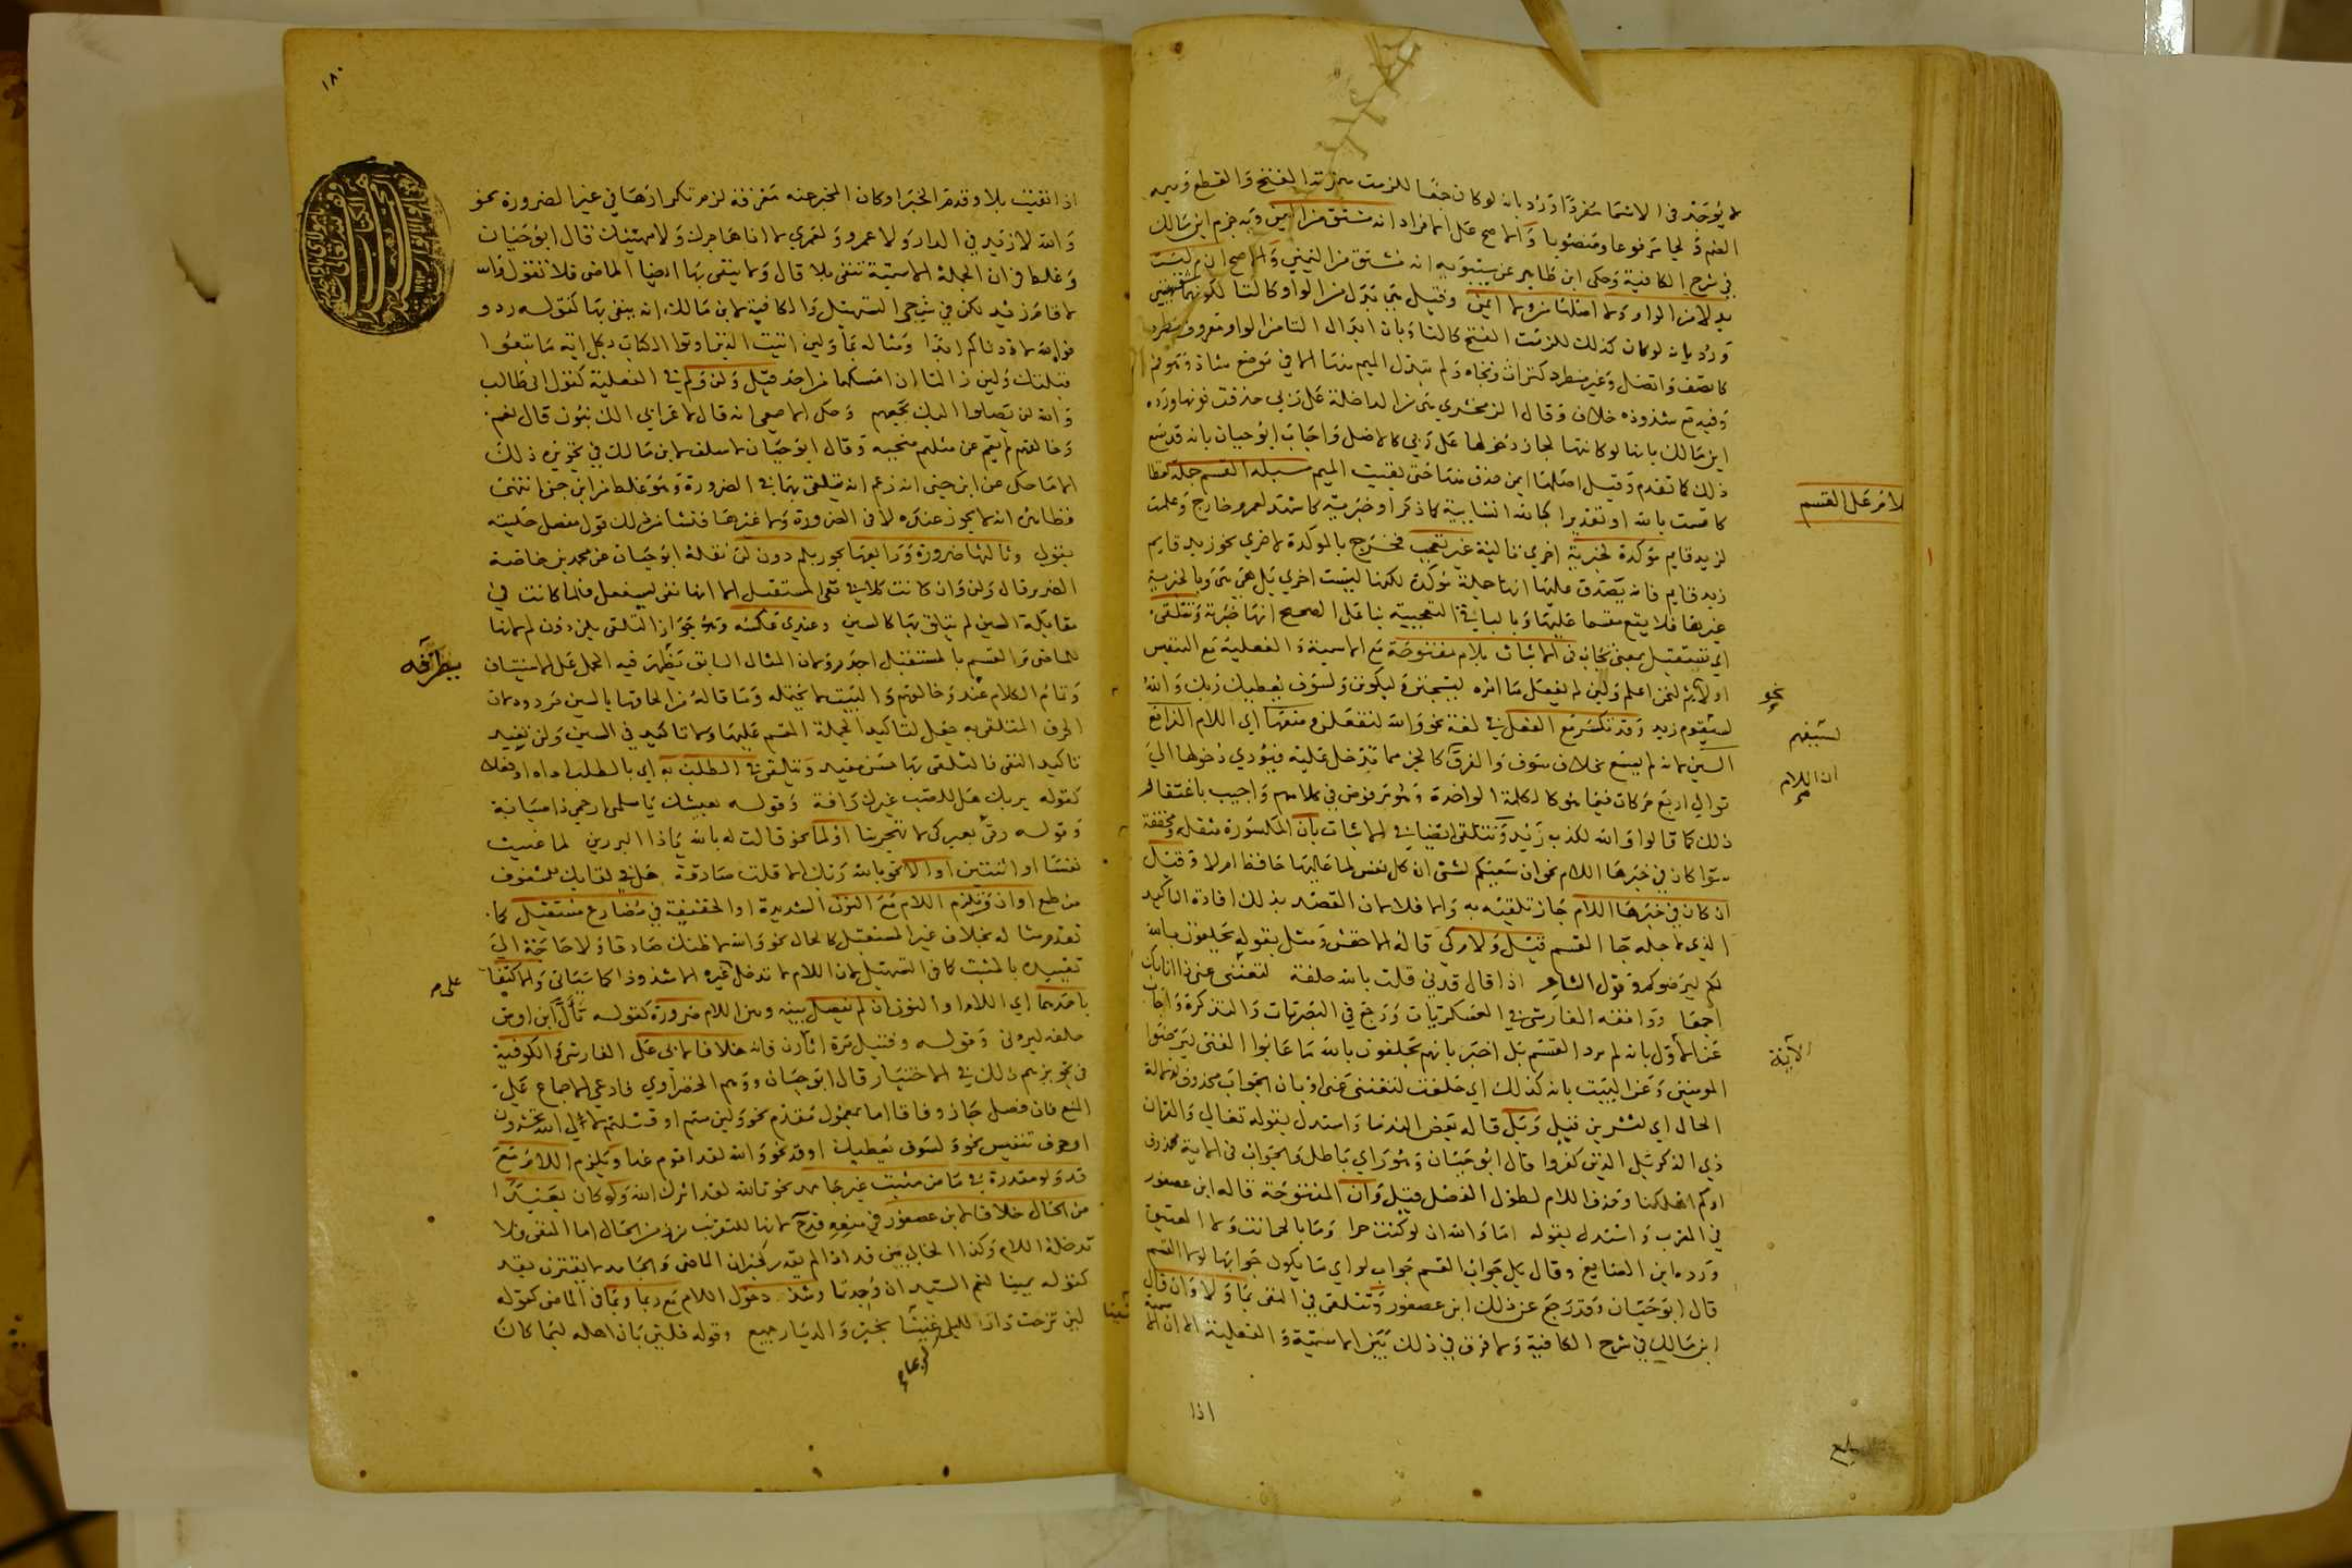 لا يوجد في الاسما مفردا ورد بانه لو كان حقا للزمت همزتها الفتح والقطع وميمه
الضم ولجا مرفوعا ومنصوبا والاصح على انها فراد انه مشتق من اليمن وبه جزم ابن مالك
في شرح الكافية وحكى ابن طاهر عن سيبويه انه مشتق من اليمين والاصح ان م ليست
بدلا من الواو ولا اصلها من ولا ايمن وقيل هي بدل من الواو كالتا لكونهما شفهيتين
ورد بانه لو كان كذلك للزمت الفتح كالتا وبان ابدال التا من الواو معروف مطرد
كاتصف واتصل وغير مطرد كتراث وتجاه ولم تبدل الميم منها الا في موضع شاذ وهو فم
وفيه مع شذوذه خلاف وقال الزمخشري هي من الداخلة على ربي حذفت نونها ورده
ابن مالك بانها لو كانتها لجاز دخولها على ربي كالاصل واجاب ابو حيان بانه قد سمع
ذلك كما تقدم وقيل اصلها ايمن حذف منها حتى بقيت الميم مسيلة القسم جملة لفظا
كاقسمت بالله او تقديرا كبالله انشايية كما ذكر او خبرية كاشهد لعمرو خارج وعلمت
لزيد قايم موكدة لخبرية اخرى تالية غير تعجب فخرج بالموكدة لاخرى نحو زيد قايم
زيد قايم فانه يصدق عليها انها جملة موكدة لكنها ليست اخرى بل هي هي وبالخبرية
غيرها فلا يقع مقسما عليها وبالباقي التعجبية بنا على الصحيح انها خبرية وتتلقى
اي تستقبل بمعنى تجاب في الاثبات بلام مفتوحة مع الاسمية والفعلية مع التنفيس
اولا نحو لنحن اعلم ولين لم يفعل ما امره ليسجنن وليكونن ولسوف يعطيك ربك والله
لسيقوم زيد وقد تكسر مع الفعل في لغة نحو والله لتفعلن ومنعها اي اللام الفرا مع
السين لانه لم يسمع بخلاف سوف والفرق كالجز مما تدخل عليه فيودي دخولها الي
توالي اربع حركات فيما هو كالكلمة الواحدة وهو مرفوض في كلامهم واجيب باغتفار
ذلك كما قالوا والله لكذب زيد وتتلقى ايضا في الاثبات بان المكسورة مثقلة ومخففة
سوا كان في خبرها اللام نحو ان سعيكم لشتى ان كل نفس لما عليها حافظ ام لا وقيل
ان كان في خبرها اللام جاز تلقيه به والا فلا لان القصد بذلك افادة التاكيد
الذي لاجله جا القسم قيل ولام كي قاله الاخفش ومثل بقوله يحلفون بالله
لكم ليرضوكم وقول الشاعر اذا قال قدني قلت بالله حلفة لتغنني عني ذا انائك
اجمعا ووافقه الفارسي في العسكريات ورجع في البصريات والتذكرة واجاب
عن الاول بانه لم يرد القسم بل اخبر بانهم يحلفون بالله ما عابوا النبي ليرضوا
المومنين وعن البيت بانه كذلك اي حلفت لتغنني عني او بان الجواب محذوف لدلالة
الحال اي لتشربن قيل وبل قاله بعض القدما واستدل بقوله تعالى والقران
ذي الذكر بل الذين كفروا قال ابو حيان وهو راي باطل والجواب في الاية محذوف
او كم اهلكنا وحذف اللام لطول الفصل قيل وان المفتوحة قاله ابن عصفور
في المقرب واستدل بقوله اما والله ان لو كنت حرا وما بالحر انت ولا العتيق
ورده ابن الصايغ وقال بل جواب القسم جواب لو اي ما يكون جوابها لولا القسم
قال ابو حيان وقد رجع عن ذلك ابن عصفور وتتلقى في النفي بما ولا وان قال
ابن مالك في شرح الكافية ولا فرق في ذلك بين الاسمية والفعلية الا ان الاسمية
لامر على القسم
نحو
لسيفهم
ان اللام
الآية
اذا
بلغ
١٨٠
اذا نفيت بلا وقدم الخبر او كان المخبر عنه معرفة لزم تكرارها في غير الضرورة نحو
والله لا زيد في الدار ولا عمرو ولعمري لا انا هاجرك ولا مهينك قال ابو حيان
وغلط في ان الجملة الاسمية تنفى بلا قال ولا ينفى بها ايضا الماضي فلا تقول والله
لا قام زيد لكن في شرحي التسهيل والكافية لابن مالك انه ينفى بها كقوله ردوا
فوالله لا ذدناكم ابدا ومثاله بما ولين اتيت الذين اوتوا الكتاب بكل آية ما تبعوا
قبلتك ولين زالتا ان امسكهما من احد قيل ولن ولم في الفعلية كقول ابي طالب
والله لن يصلوا اليك بجمعهم وحكى الاصمعي انه قال لاعرابي الك بنون قال نعم
وخالقهم لم تقم عن مثلهم منجبه وقال ابو حيان لا سلف لابن مالك في تجويزه ذلك
الا ما حكي عن ابن جني انه زعم انه يتلقى بهما في الضرورة وهو غلط من ابن جني انتهى
فظاهره انه لا يجوز عنده لا في الضرورة ولا غيرها
وثالثها ضرورة ورابعها يجوز بلم دون لن نقله ابو حيان عن محمد بن خلصة
الضرير قال ولن وان كانت كلا في نفي المستقبل الا انها نفي ليفعل فلما كانت في
مقابلة السين لم يتلق بها كالسين وعندي عكسه وهو جواز التلقي بلن دون لم لانها
للماضي والقسم بالمستقبل اجدر ولان المثال السابق يظهر فيه الحمل على الاستيناف
وتام الكلام عند وخالقهم والبيت لا يحتمله وما قاله من الحاقها بالسين مردود لان
الحرف المتلقى به جعل لتاكيد الجملة المقسم عليها ولا تاكيد في السين ولن تفيد
تاكيد النفي فالتلقي بها حسن مفيد وتتلقى في الطلب به اي بالطلب
كقوله بربك هل للصب عندك رافة وقوله بعيشك يا سلمى ارحمي ذا صبابة
وقوله رقى بعمركم لا تهجرينا او لما نحو قالت له بالله ياذا البردين لما غنثت
نفسا او اثنين او الا نحو بالله ربك الا قلت صادقة هل في لقايك للمشغوف
من طمع او ان وتلزم اللام مع النون الشديدة او الخفيفة في مضارع مستقبل كما
تقدم مثاله بخلاف غير المستقبل كالحال نحو والله لاظنك صادقا ولا حاجة الي
تقييده بالمثبت كما في التسهيل لان اللام لا تدخل غيره الا شذوذا كما سيأتي والاكتفا
باحدهما اي اللام او النون ان لم يفصل بينه وبين اللام ضرورة كقوله تألى ابن اوس
حلفة ليردني وقوله وقتيل مرة اثأرن فانه خلافا لابي علي الفارسي والكوفية
في تجويزهم ذلك في الاختيار قال ابو حيان ووهم الخضراوي فادعى الاجماع على
المنع فان فصل جاز وفاقا اما بمعمول مقدم نحو ولين متم او قتلتم لالى الله تحشرون
او حرف تنفيس نحو ولسوف يعطيك او قد نحو والله لقد اقوم غدا وتلزم اللام مع
قد ولو مقدرة في ماض مثبت غير جامد نحو تالله لقد اثرك الله ولو كان بعيدا
من الحال خلافا لابن عصفور في منعه قد ح لانها للتقريب من زمن الحال اما المنفي فلا
تدخله اللام وكذا الخالي من قد اذا لم يقدر كخبر ان الماضي والجامد لا يقترن بقد
كقوله يمينا لنعم السيدان وجدتما وشذ دخول اللام مع ربما وبما في الماضي كقوله
لين نزحت دار لليلى لربما غنينا بخير والديار جميع وقوله فلين بان اهله لبما كان
بطرفه
على م
لربما